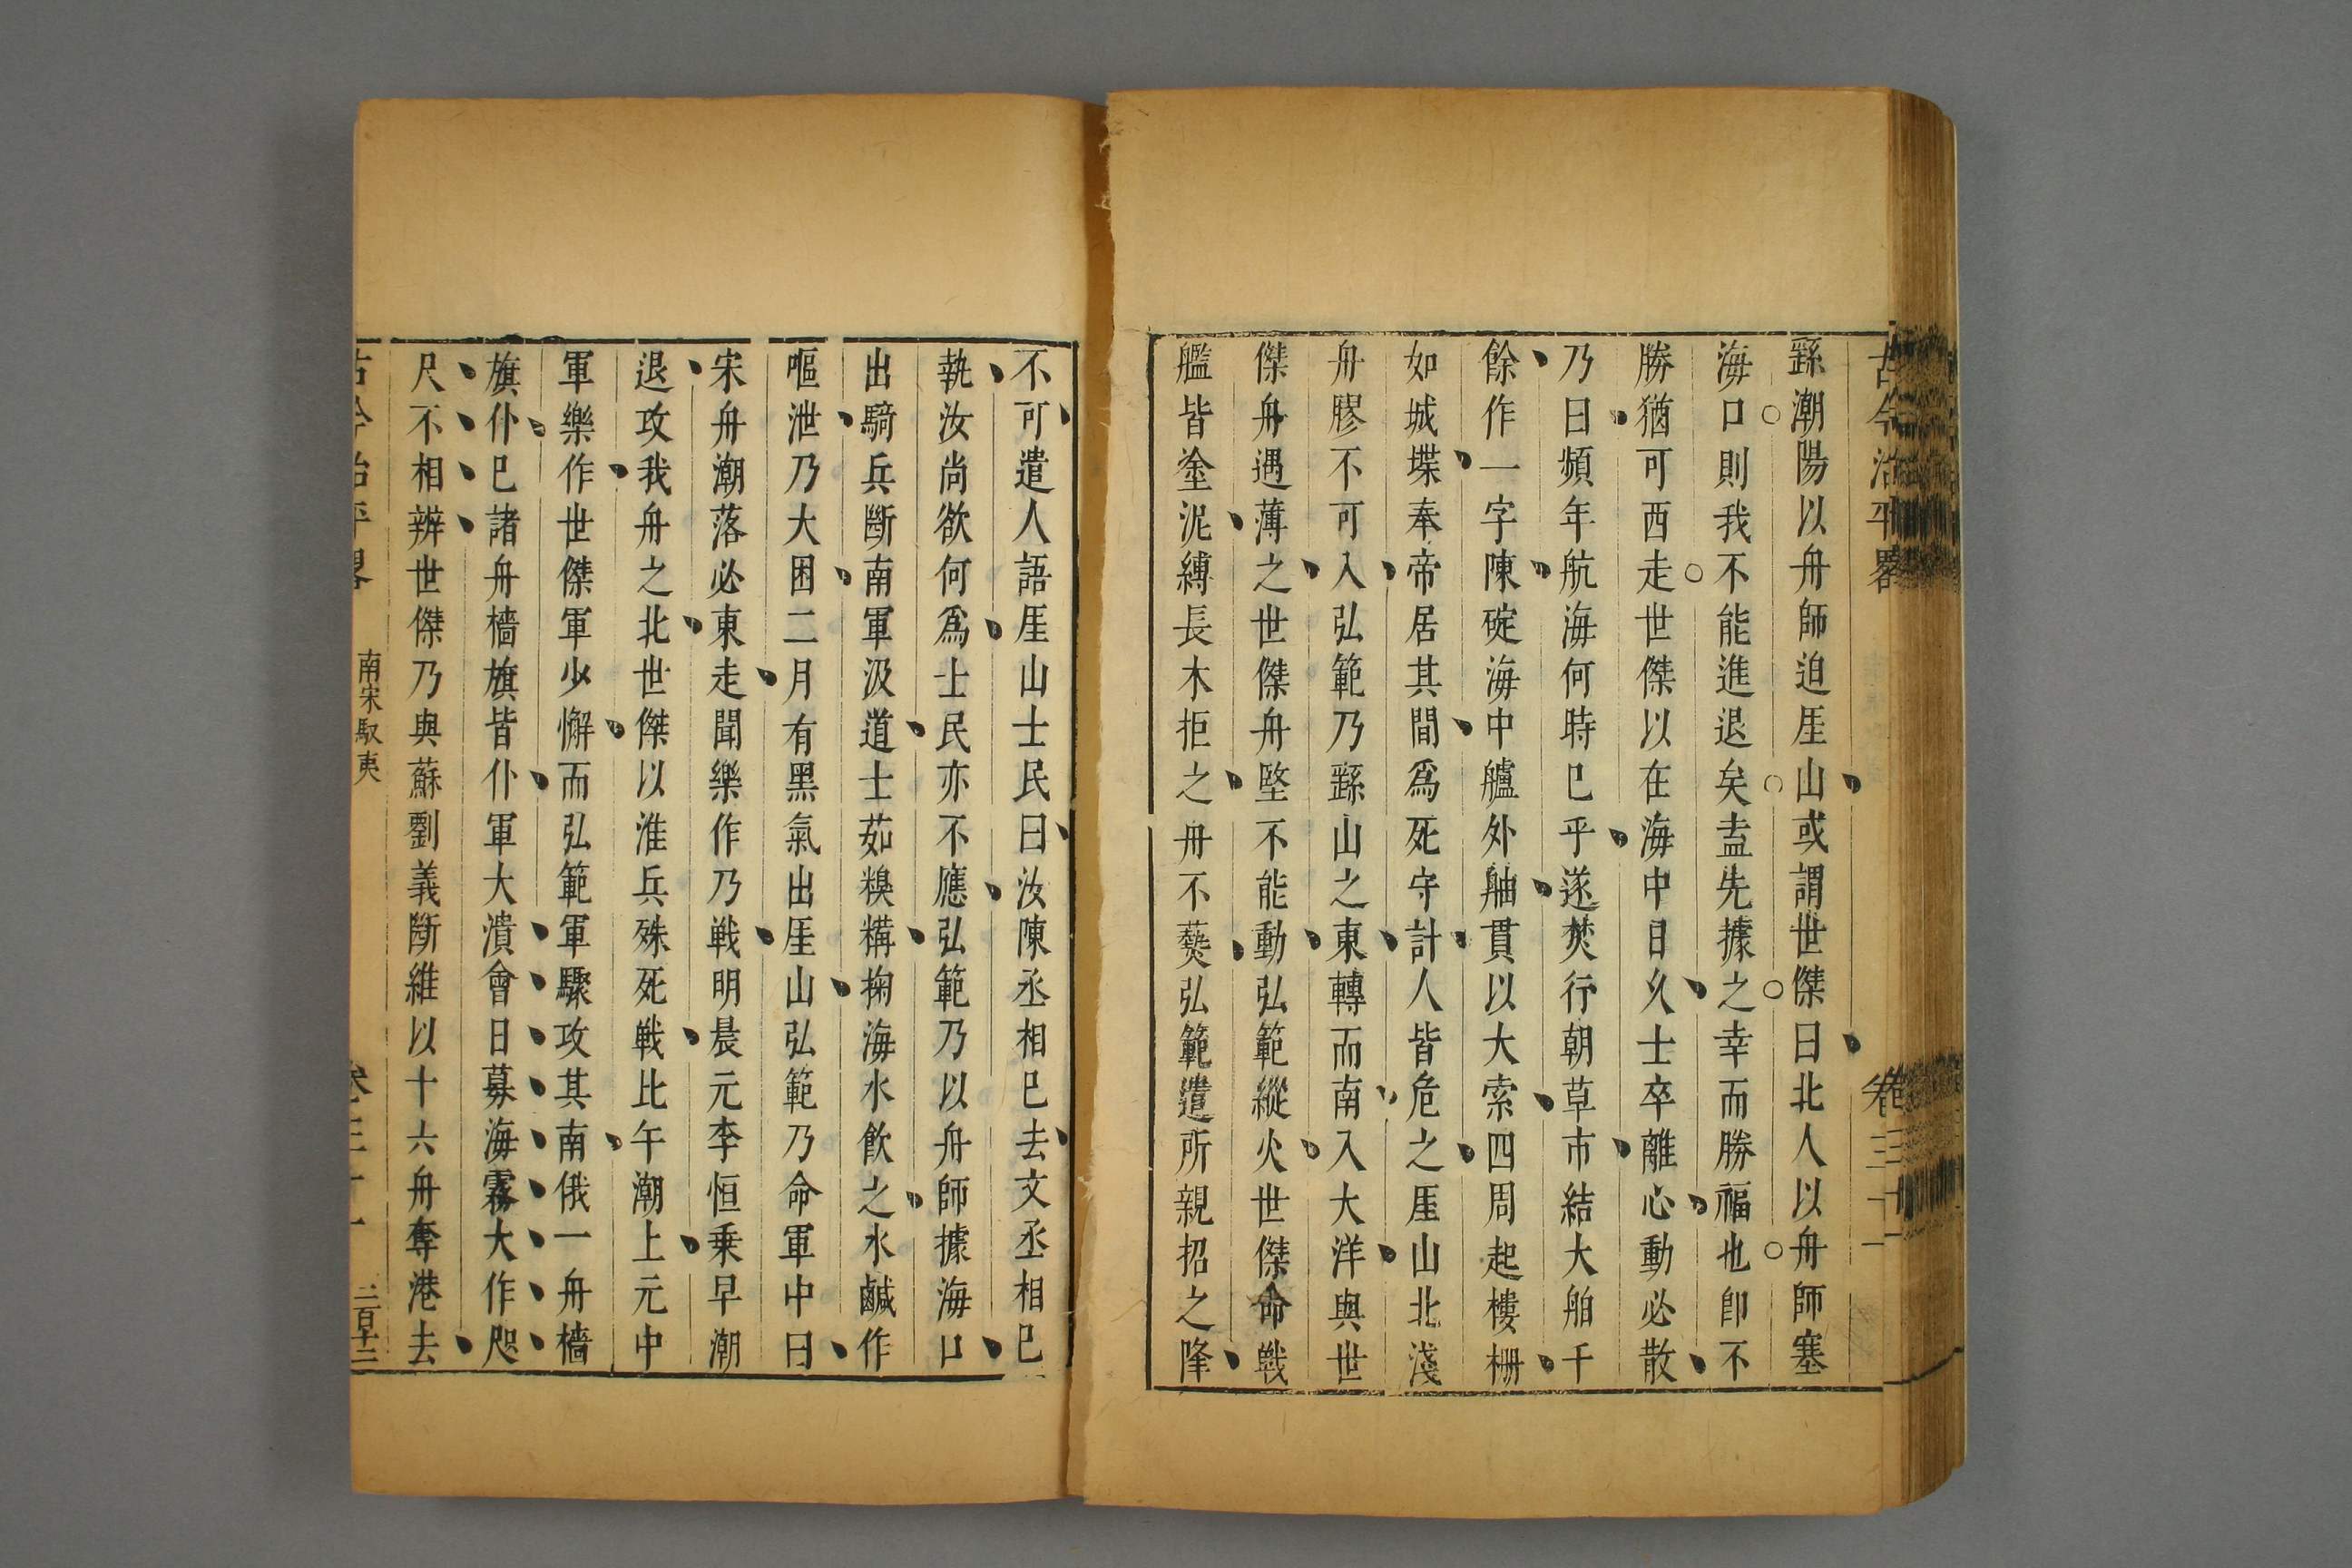 古今治平畧
卷三十一
繇潮陽以舟師迫厓山或謂世傑曰北人以舟師塞
海口則我不能進退矣盍先據之幸而勝福也卽不
勝猶可西走世傑以在海中日久士卒離心動必散
乃曰頻年航海何時已乎遂焚行朝草市結大舶千
餘作一字陳碇海中艫外舳貫以大索四周起樓柵
如城堞奉帝居其間爲死守計人皆危之厓山北淺
舟膠不可入弘範乃繇山之東轉而南入大洋與世
傑舟遇薄之世傑舟堅不能動弘範縱火世傑命戰
艦皆塗泥縛長木拒之舟不爇弘範遣所親招之降
不可遣人語厓山士民曰汝陳丞相已去文丞相已
執汝尚欲何爲士民亦不應弘範乃以舟師據海口
出騎兵斷南軍汲道士茹糗糒掬海水飲之水鹹作
嘔泄乃大困二月有黑氣出厓山弘範乃命軍中曰
宋舟潮落必東走聞樂作乃戰明晨元李恒乗早潮
退攻我舟之北世傑以淮兵殊死戰比午潮上元中
軍樂作世傑軍少懈而弘範軍驟攻其南俄一舟檣
旗仆已諸舟檣旗皆仆軍大潰會日暮海霧大作咫
尺不相辨世傑乃與蘇劉義斷維以十六舟奪港去
古今治平畧
南宋馭夷
卷三十一
三百十三